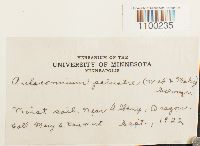 1100235
HERBARIUM OF THE
UNIVERSITY OF MINNESOTA
MINNEAPOLIS
Aulacomnium palustre (Web & Mohr)
Schwaegr
Moist soil, Near Camp, Oregon.
Coll. Mary Sept., 1922